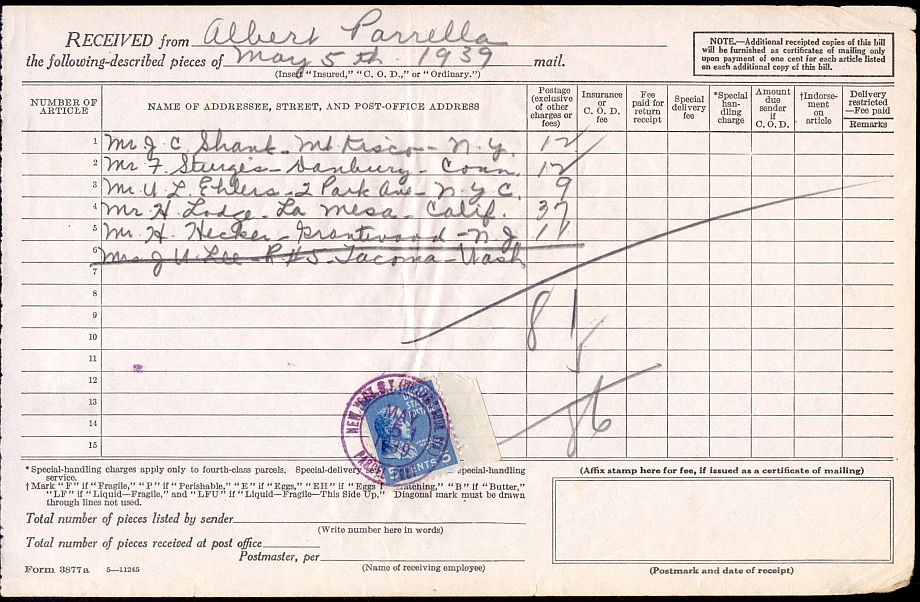 RECEIVED from Albert Parrella
the following-described pieces of May 5th 1939 mail.
(Insert "Insured," "C. O. D.," or "Ordinary.")
NOTE.—Additional receipted copies of this bill
will be furnished as certificates of mailing only
upon payment of one cent for each article listed
on each additional copy of this bill.
NUMBER OF ARTICLE
NAME OF ADDRESSEE, STREET, AND POST-OFFICE ADDRESS
Postage (exclusive of other charges or fees)
Insurance or C. O. D. fee
Fee paid for return receipt
Special delivery fee
*Special handling charge
Amount due sender if C. O. D.
†Indorsement on article
Delivery restricted—Fee paid
Remarks
1 Mr J. C. Shank - Mt Kisco - N.Y. 12
2 Mr F. Sturges - Danbury - Conn. 12
3 Mr. U. L. Ehlers - 2 Park Ave - N.Y.C. 9
4 Mr H. Lodge - La Mesa - Calif. 37
5 Mr. H. Hecker - Grantwood - N.J. 11
6 Mrs J U. Lee - R #5 - Tacoma - Wash
7
8
9 81
10
11 5
12
13
14 86
15
NEW YORK, N.Y.
MAY 5
CENTS 5
*Special-handling charges apply only to fourth-class parcels. Special-delivery special-handling
service.
†Mark "F" if "Fragile," "P" if "Perishable," "E" if "Eggs," "EH" if "Eggs f Hatching," "B" if "Butter,"
"LF" if "Liquid—Fragile," and "LFU" if "Liquid—Fragile—This Side Up." Diagonal mark must be drawn
through lines not used.
Total number of pieces listed by sender
(Write number here in words)
Total number of pieces received at post office
Postmaster, per
(Name of receiving employee)
Form 3877a 5—11245
(Affix stamp here for fee, if issued as a certificate of mailing)
(Postmark and date of receipt)